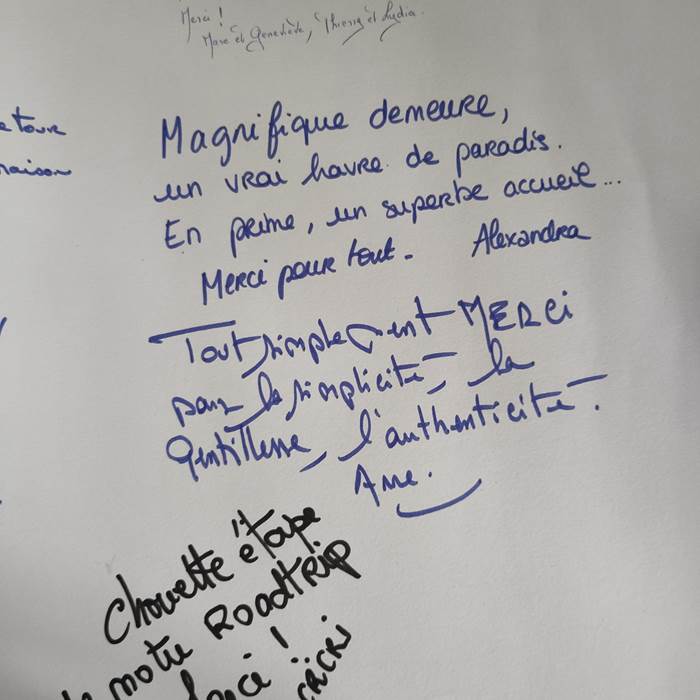 Merci !
Marc et Geneviève, Thierry et Lydia
e tour
maison
Magnifique demeure,
un vrai havre de paradis.
En prime, un superbe accueil...
Merci pour tout. Alexandra
Tout simplement MERCi
pour la simplicité, la
gentillesse, l'authenticité.
Anne.
Chouette étape
de notre ROADTRIP